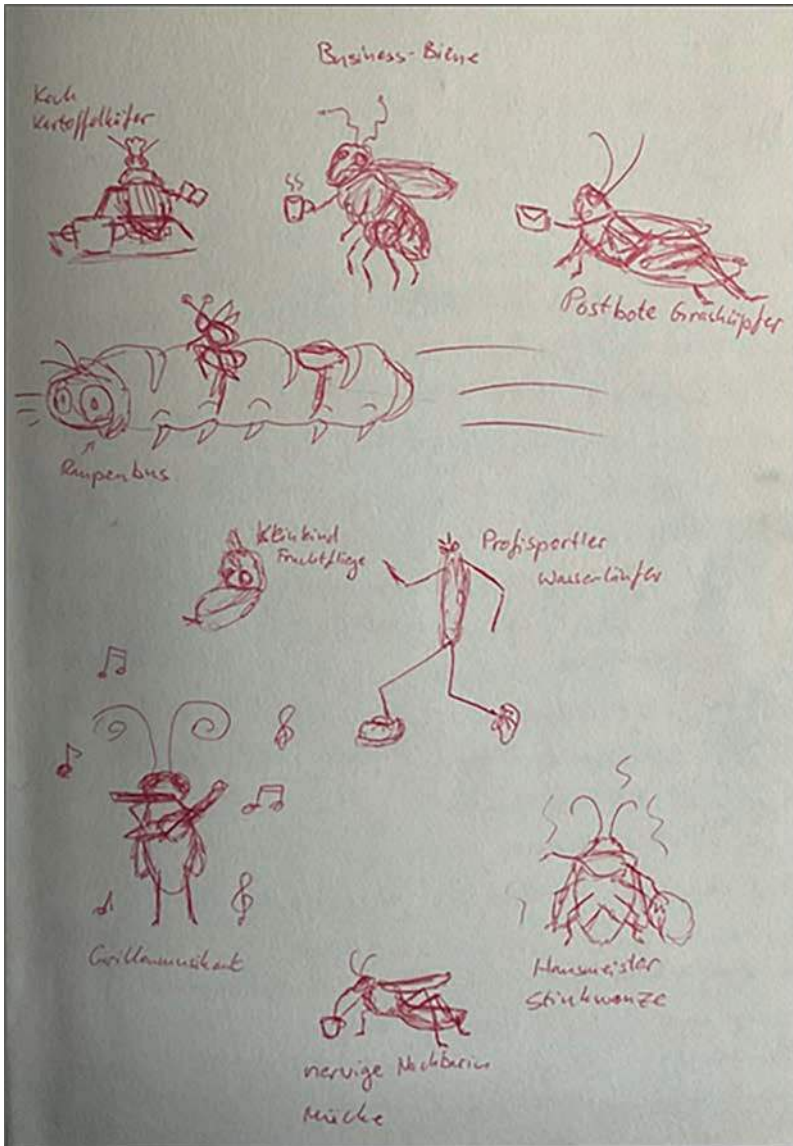 Business-Biene
Koch
Kartoffelkäfer
Postbote Grashüpfer
Raupenbus
Kleinkind
Fruchtfliege
Profisportler
Wasserläufer
Grillenmusikant
Hausmeister
Stinkwanze
nervige Nachbarin
Mücke